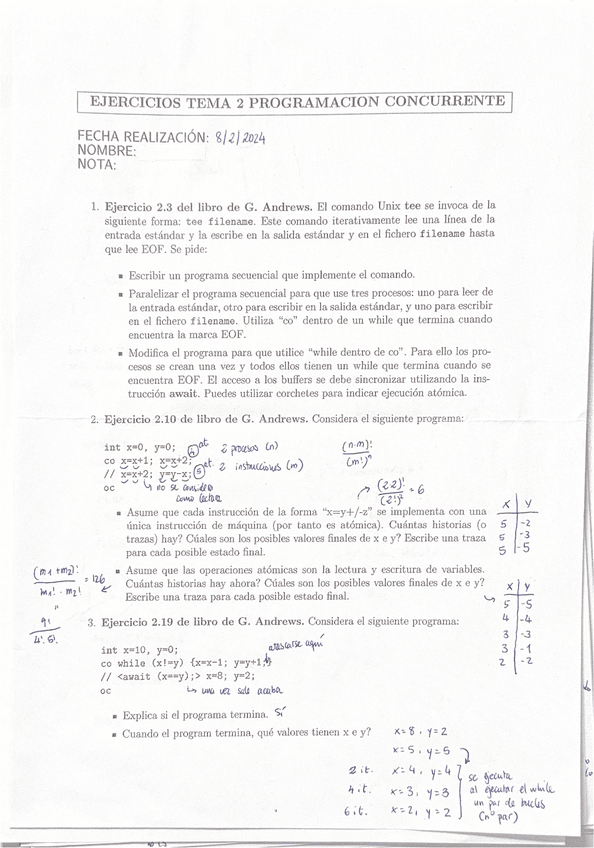 EJERCICIOS TEMA 2 PROGRAMACION CONCURRENTE
FECHA REALIZACIÓN: 8/2/2024
NOMBRE:
NOTA:
1. Ejercicio 2.3 del libro de G. Andrews. El comando Unix tee se invoca de la
siguiente forma: tee filename. Este comando iterativamente lee una línea de la
entrada estándar y la escribe en la salida estándar y en el fichero filename hasta
que lee EOF. Se pide:
▪ Escribir un programa secuencial que implemente el comando.
▪ Paralelizar el programa secuencial para que use tres procesos: uno para leer de
la entrada estándar, otro para escribir en la salida estándar, y uno para escribir
en el fichero filename. Utiliza "co" dentro de un while que termina cuando
encuentra la marca EOF.
▪ Modifica el programa para que utilice "while dentro de co". Para ello los pro-
cesos se crean una vez y todos ellos tienen un while que termina cuando se
encuentra EOF. El acceso a los buffers se debe sincronizar utilizando la ins-
trucción await. Puedes utilizar corchetes para indicar ejecución atómica.
2. Ejercicio 2.10 de libro de G. Andrews. Considera el siguiente programa:
int x=0, y=0;
co x=x+1; x=x+2; 4 at 2 procesos (n)
// x=x+2; y=y-x; 5 at. 2 instrucciones (m)
oc ↳ no se considera
como lectura
(n·m)!
(m!)ⁿ
(2·2)!
(2!)² = 6
▪ Asume que cada instrucción de la forma "x=y+/-z" se implementa con una
única instrucción de máquina (por tanto es atómica). Cuántas historias (o
trazas) hay? Cúales son los posibles valores finales de x e y? Escribe una traza
para cada posible estado final.
X Y
5 -2
5 -3
5 -5
▪ Asume que las operaciones atómicas son la lectura y escritura de variables.
Cuántas historias hay ahora? Cúales son los posibles valores finales de x e y?
Escribe una traza para cada posible estado final.
(m1 + m2)!
m1! · m2! = 126
"
9!
4! · 5!
X Y
5 -5
4 -4
3 -3
3 -1
2 -2
3. Ejercicio 2.19 de libro de G. Andrews. Considera el siguiente programa:
int x=10, y=0; atascarse aquí
co while (x!=y) {x=x-1; y=y+1;}
// <await (x==y);> x=8; y=2;
oc ↳ una vez sale acaba
▪ Explica si el programa termina. Sí
▪ Cuando el program termina, qué valores tienen x e y? x=8, y=2
x=5, y=5
2 it. x=4, y=4
4 it. x=3, y=3
6 it. x=2, y=2
se ejecuta
al ejecutar el while
un par de bucles
(nº par)